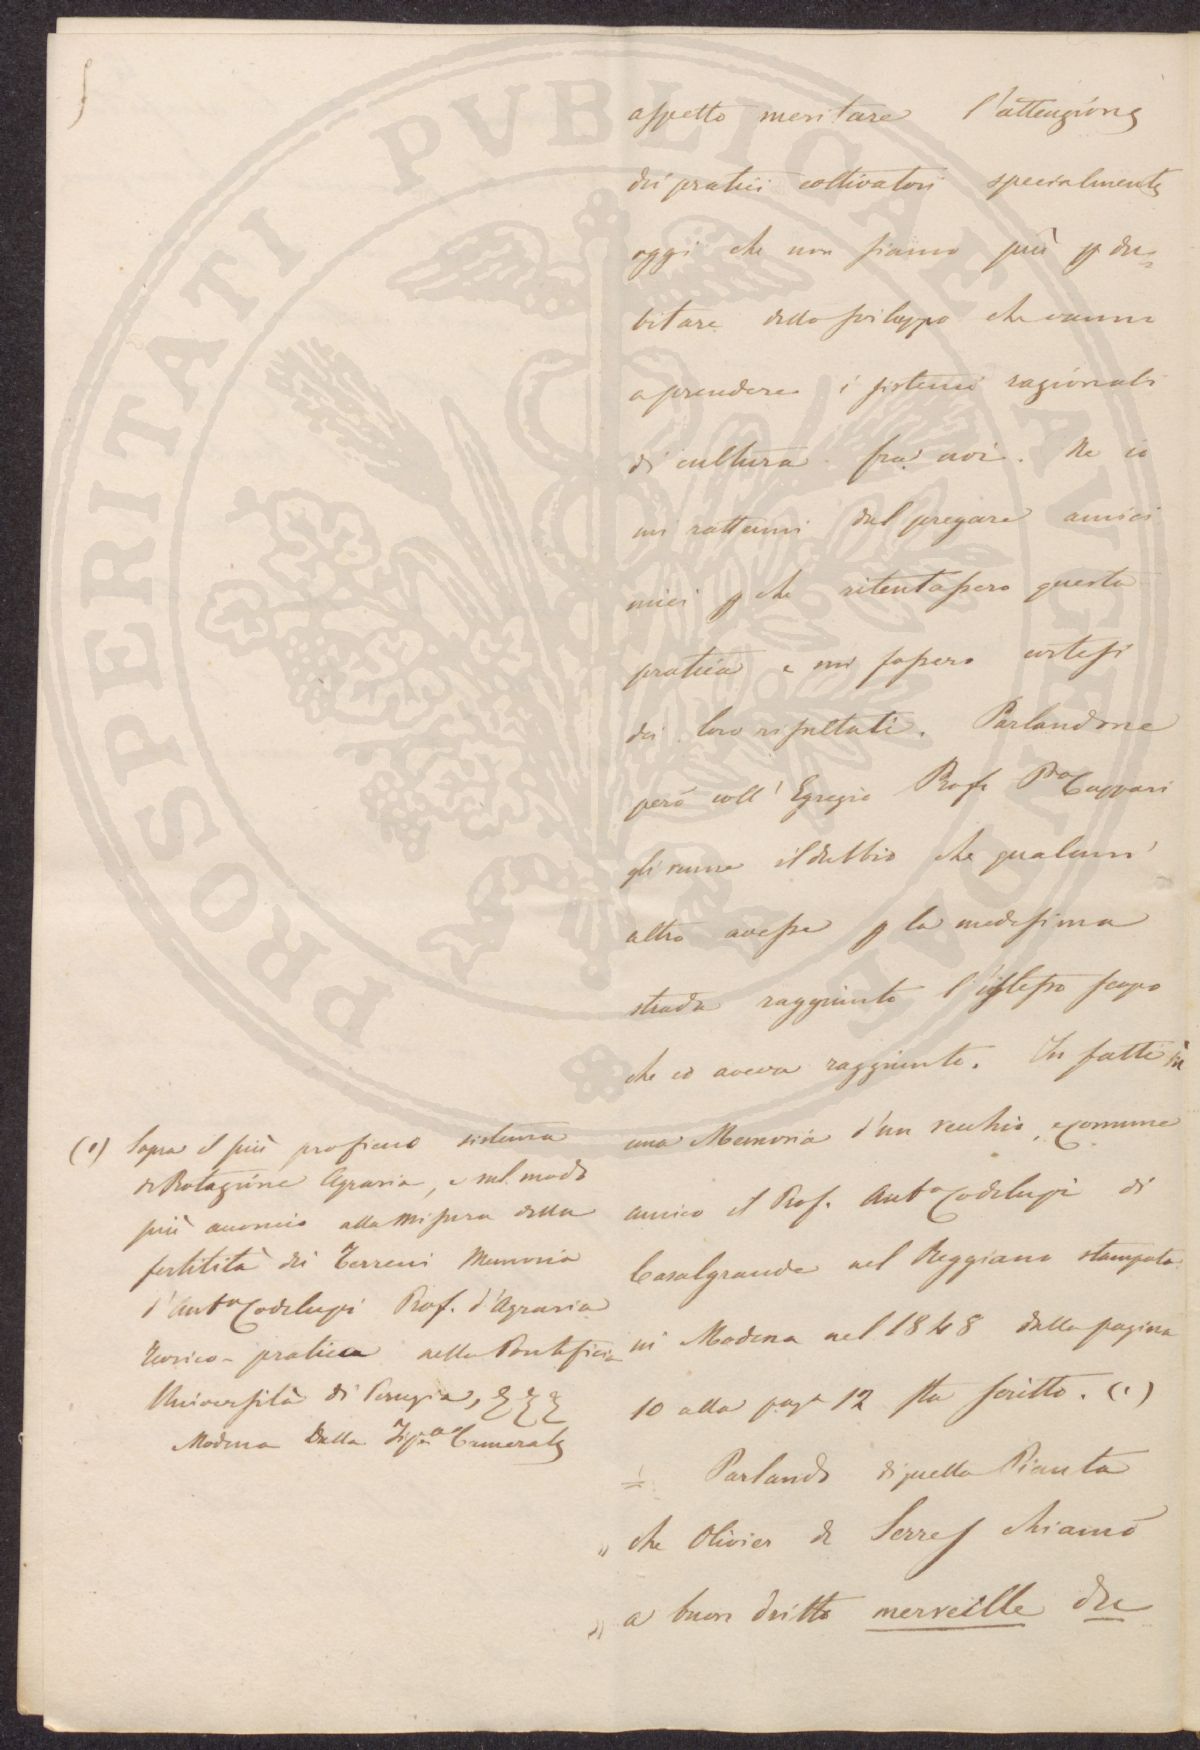 aspetto meritare l'attenzione
dei pratici coltivatori specialmente
oggi che non siamo più p du=
bitare dello sviluppo che vanno
a prendere i sistemi razionali
di cultura fra noi. Ne io
mi rattenni dal pregare amici
miei pche ritentassero questa
pratica e mi fossero cortesi
dei loro risultati. Parlandone
però coll'Egregio Prof.
gli venne il dubbio che qualcun'
altro avesse p la medesima
strada raggiunto l'istesso scopo
che io aveva raggiunto. In fatti in
una Memoria d'un vecchio, e comune
amico il Prof. Antº Codelupi di
Casalgrande nel Reggiano stampata
in Modena nel 1848 dalla pagina
10 alla pagª 12 sta scritto. (1)
÷ Parlando di quella Pianta
„ che Olivier de Serres chiamò
„ a buon dritto merveille du
(1) Sopra il più proficuo sistema
di Rotazione Agraria, e sul modo
più acconcio alla misura della
fertilità dei Terreni Memoria
d'Antº Codelupi Prof. d'Agraria
Teorico-pratica nella Pontificia
Università di Perugia,
Modena Dalla Tipª Camerale
PROSPERITATI PVBLICAE AVGENDAE